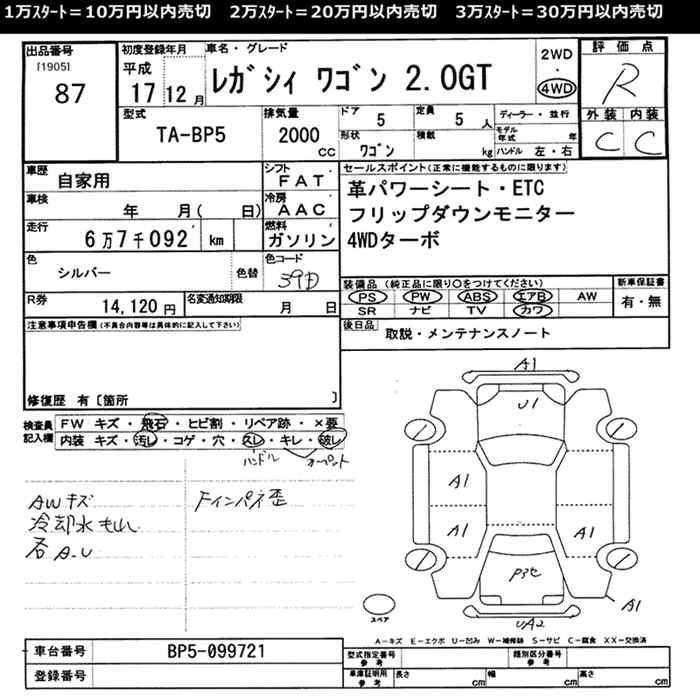 1万ｽﾀｰﾄ＝10万円以内売切　2万ｽﾀｰﾄ＝20万円以内売切　3万ｽﾀｰﾄ＝30万円以内売切
出品番号 [1905] 87
初度登録年月 平成 17 12 月
車名・グレード レガシィ ワゴン 2.0GT
2WD・4WD
評価点 R
外装 C 内装 C
型式 TA-BP5
排気量 2000 CC
ドア 5 定員 5 人
形状 ワゴン 積載 kg
ディーラー・並行
モデル年式 年
ハンドル 左・右
車歴 自家用
シフト FAT
セールスポイント(正常に機能するものに限ります)
革パワーシート・ETC
フリップダウンモニター
4WDターボ
車検 年 月( 日)
冷房 AAC
走行 6万7千092 km
燃料 ガソリン
色 シルバー 色替
色コード 39D
装備品 (純正品に限り○をつけてください)
PS PW ABS エアB AW
SR ナビ TV カワ
新車保証書 有・無
R券 14,120 円 名変通知期限 月 日
後日品 取説・メンテナンスノート
注意事項申告欄(不具合内容等は具体的に記入して下さい)
修復歴 有〔箇所 〕
検査員記入欄
FW キズ・飛石・ヒビ割・リペア跡・×要
内装 キズ・汚れ・コゲ・穴・スレ・キレ・破レ
ハンドル
AWキズ
冷却水もれ
各A-U
Fインパネ歪
A1
U1
A1
A1
A1
A1
UA2
スペア
A－キズ E－エクボ U－凹み W－補修跡 S－サビ C－腐食 XX－交換済
車台番号 BP5-099721
登録番号
型式指定番号 参考 類別区分番号 参考
車庫証明用 参考 長さ cm 幅 cm 高さ cm